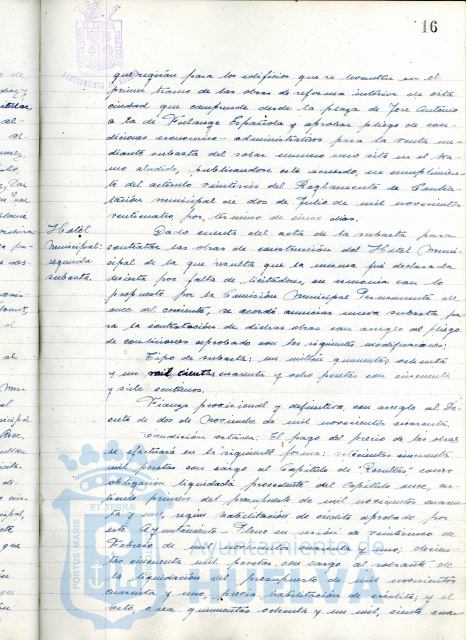 16
que regirán para los edificios que se levanten en el
primer tramo de las obras de reforma interior de esta
ciudad que comprende desde la plaza de José Antonio
a la de Falange Española y aprobar pliego de con-
diciones economico-administrativas para la venta me-
diante subasta del solar numero uno sito en el tra-
mo aludido, publicandose este acuerdo, en cumplimien-
to del articulo veintiseis del Reglamento de Contra-
tación municipal de dos de Julio de mil novecientos
veinticuatro, por termino de cinco dias.
Hotel
Municipal:
segunda
subasta.
Dada cuenta del acta de la subasta para
contratar las obras de construcción del Hotel Muni-
cipal de la que resulta que la misma fué declarada
desierta por falta de licitadores, en armonia con lo
propuesto por la Comisión Municipal Permanente el
once del corriente, se acordó anunciar nueva subasta pa-
ra la contratación de dichas obras con arreglo al pliego
de condiciones aprobado con las siguientes modificaciones:
Tipo de subasta: un millón quinientas ochenta
y un mil cientas cuarenta y ocho pesetas con cincuenta
y siete centimos.
Fianza provisional y definitiva, con arreglo al De-
creto de dos de Noviembre de mil novecientos cuarenta
Condición octava: El pago del precio de las obras
se efectuará en la siguiente forma: setecientas cincuenta
mil pesetas con cargo al Capitulo de "Resultas" como
obligación liquidada procedente del Capitulo once, ar-
ticulo primero del presupuesto de mil novecientos cuaren-
ta y uno, según habilitación de crédito aprobada por
este Ayuntamiento Pleno en sesión de veintinueve de
Febrero de mil novecientos cuarenta y uno; doscien-
tas cincuenta mil pesetas con cargo al sobrante de
la liquidación del presupuesto de mil novecientos
cuarenta y uno, previa habilitación de crédito; y el
resto, o sea quinientas ochenta y un mil, ciento cua-
PORTUS MARIS
ET TERRÆ
Ayuntamiento de
HUELVA